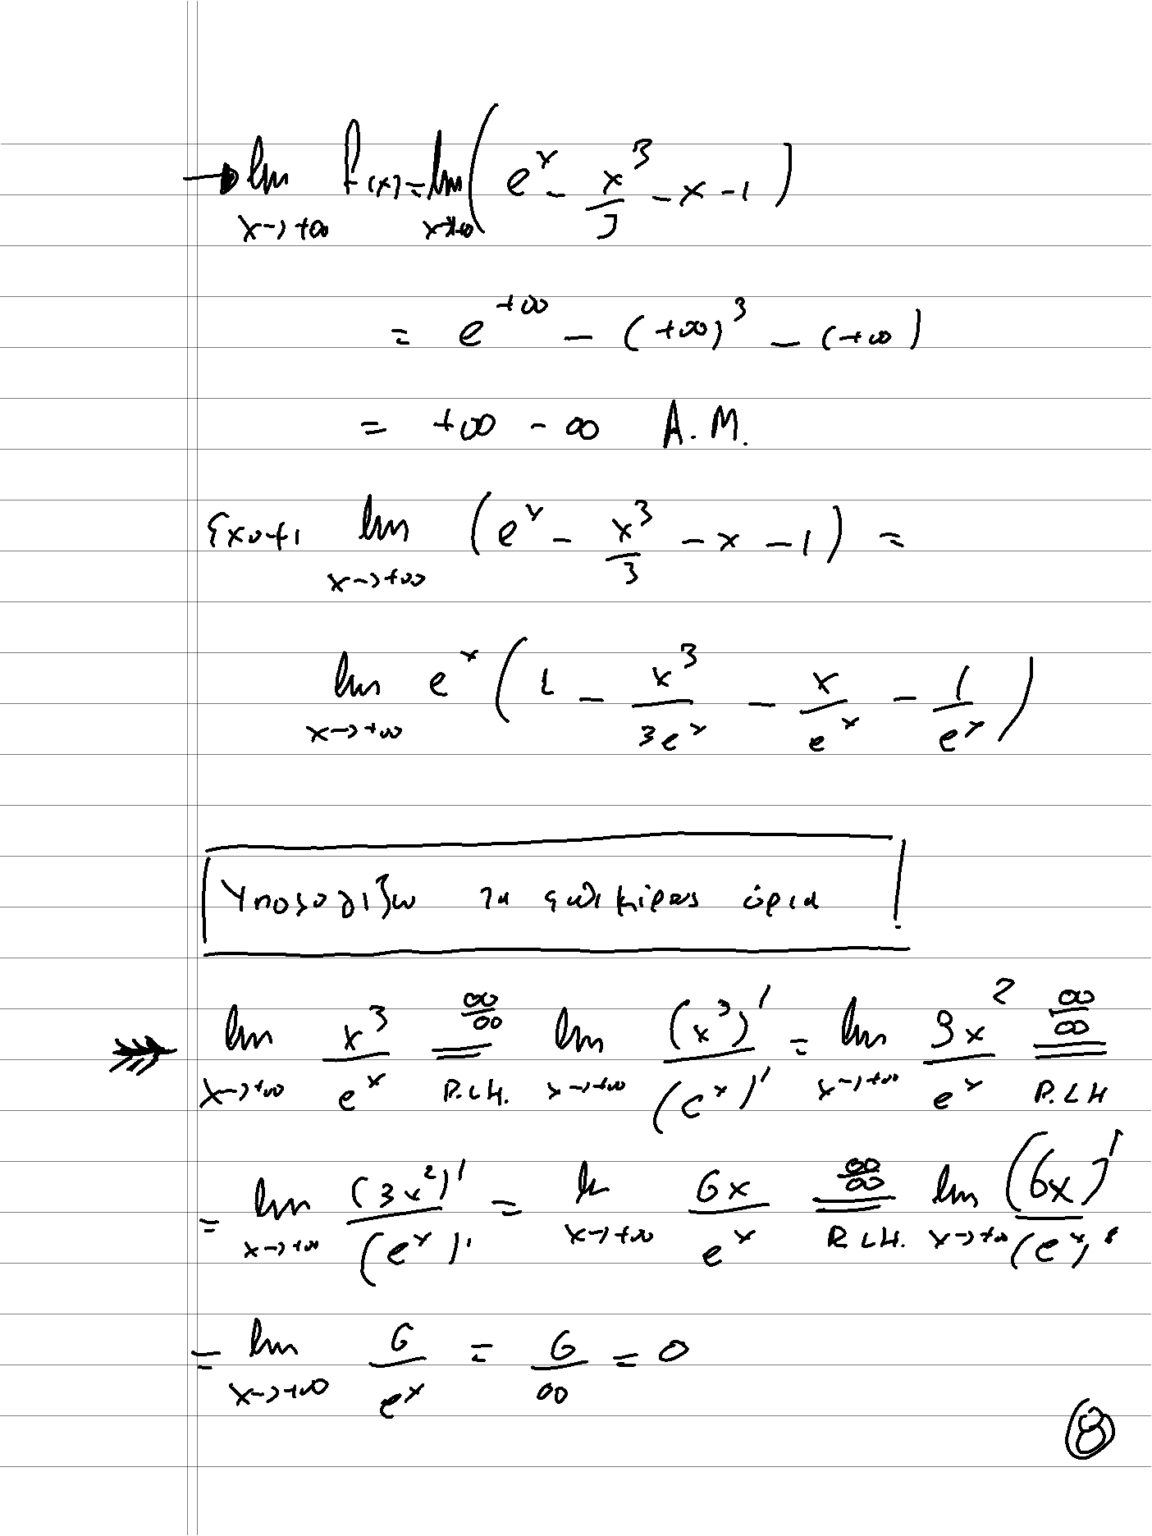 → lim_{x→+∞} f(x) = lim_{x→+∞} ( e^x - x^3/3 - x - 1 )
= e^{+∞} - (+∞)^3 - (+∞)
= +∞ - ∞ Α.Μ.
Έχοντι lim_{x→+∞} ( e^x - x^3/3 - x - 1 ) =
lim_{x→+∞} e^x ( 1 - x^3/(3e^x) - x/e^x - 1/e^x )
Υπολογίζω τα επιμέρους όρια
lim_{x→+∞} x^3/e^x =(∞/∞, R.L.H.) lim_{x→+∞} (x^3)'/(e^x)' = lim_{x→+∞} 3x^2/e^x =(∞/∞, R.L.H)
= lim_{x→+∞} (3x^2)'/(e^x)' = lim_{x→+∞} 6x/e^x =(∞/∞, R.L.H.) lim_{x→+∞} (6x)'/(e^x)'
= lim_{x→+∞} 6/e^x = 6/∞ = 0
8